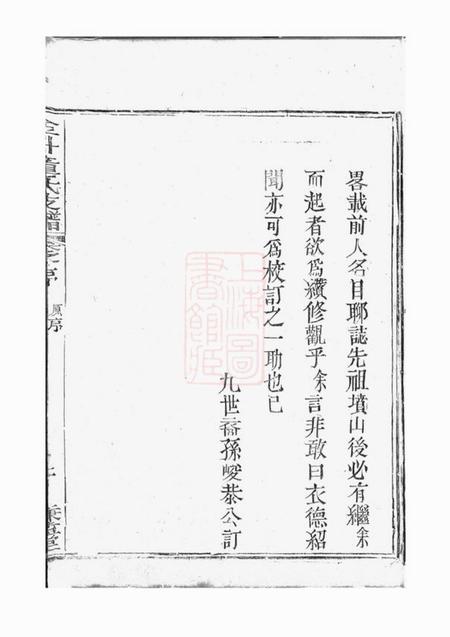 畧載前人名目聊誌先祖墳山後必有繼余
而起者欲爲纘修觀乎余言非敢曰衣德紹
聞亦可爲校訂之一助也已
九世裔孫峻恭公訂
董氏支譜
原序
上海圖書館藏